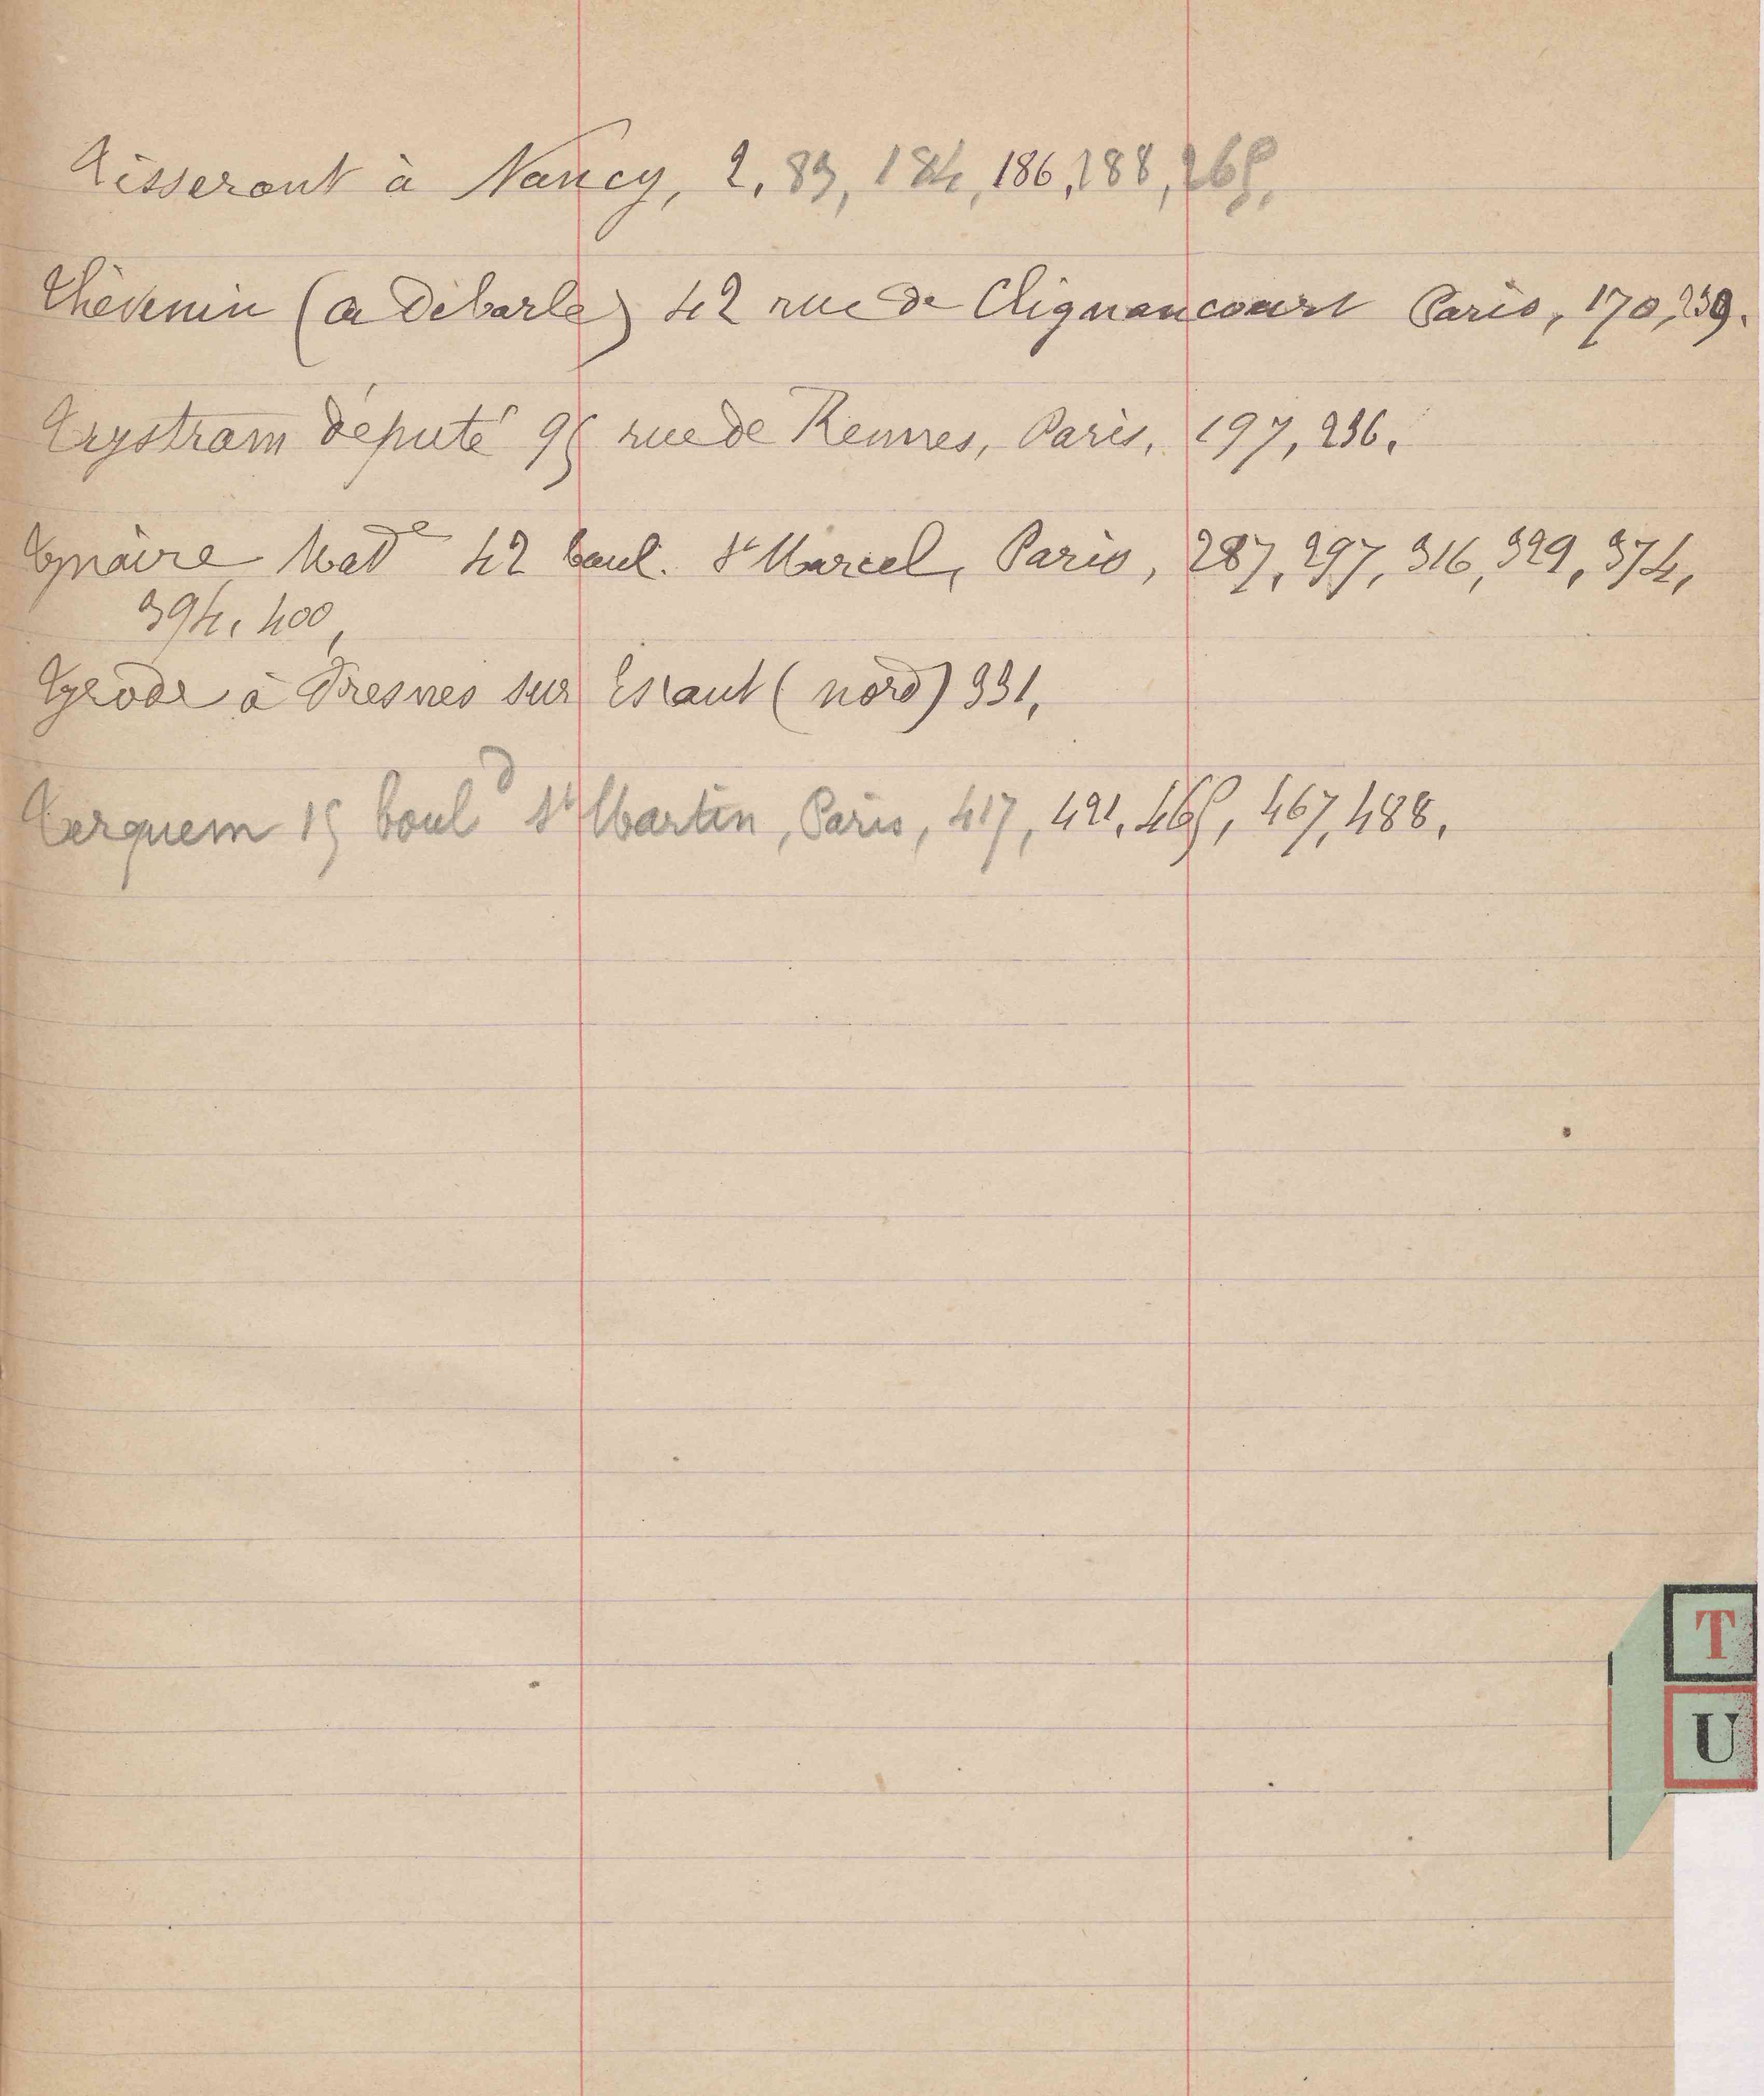 Tisserant à Nancy, 2, 83, 184, 186, 188, 265,
Thévenin (a Débarle) 42 rue de Clignancourt Paris, 170, 239.
Trystram député 95 rue de Rennes, Paris, 197, 236.
Made 42 boul. St Marcel, Paris, 287, 297, 316, 329, 374,
394, 400,
à Fresnes sur Escaut (nord) 331,
Terquem 15 bould St Martin, Paris, 417, 421, 465, 467, 488.
T
U